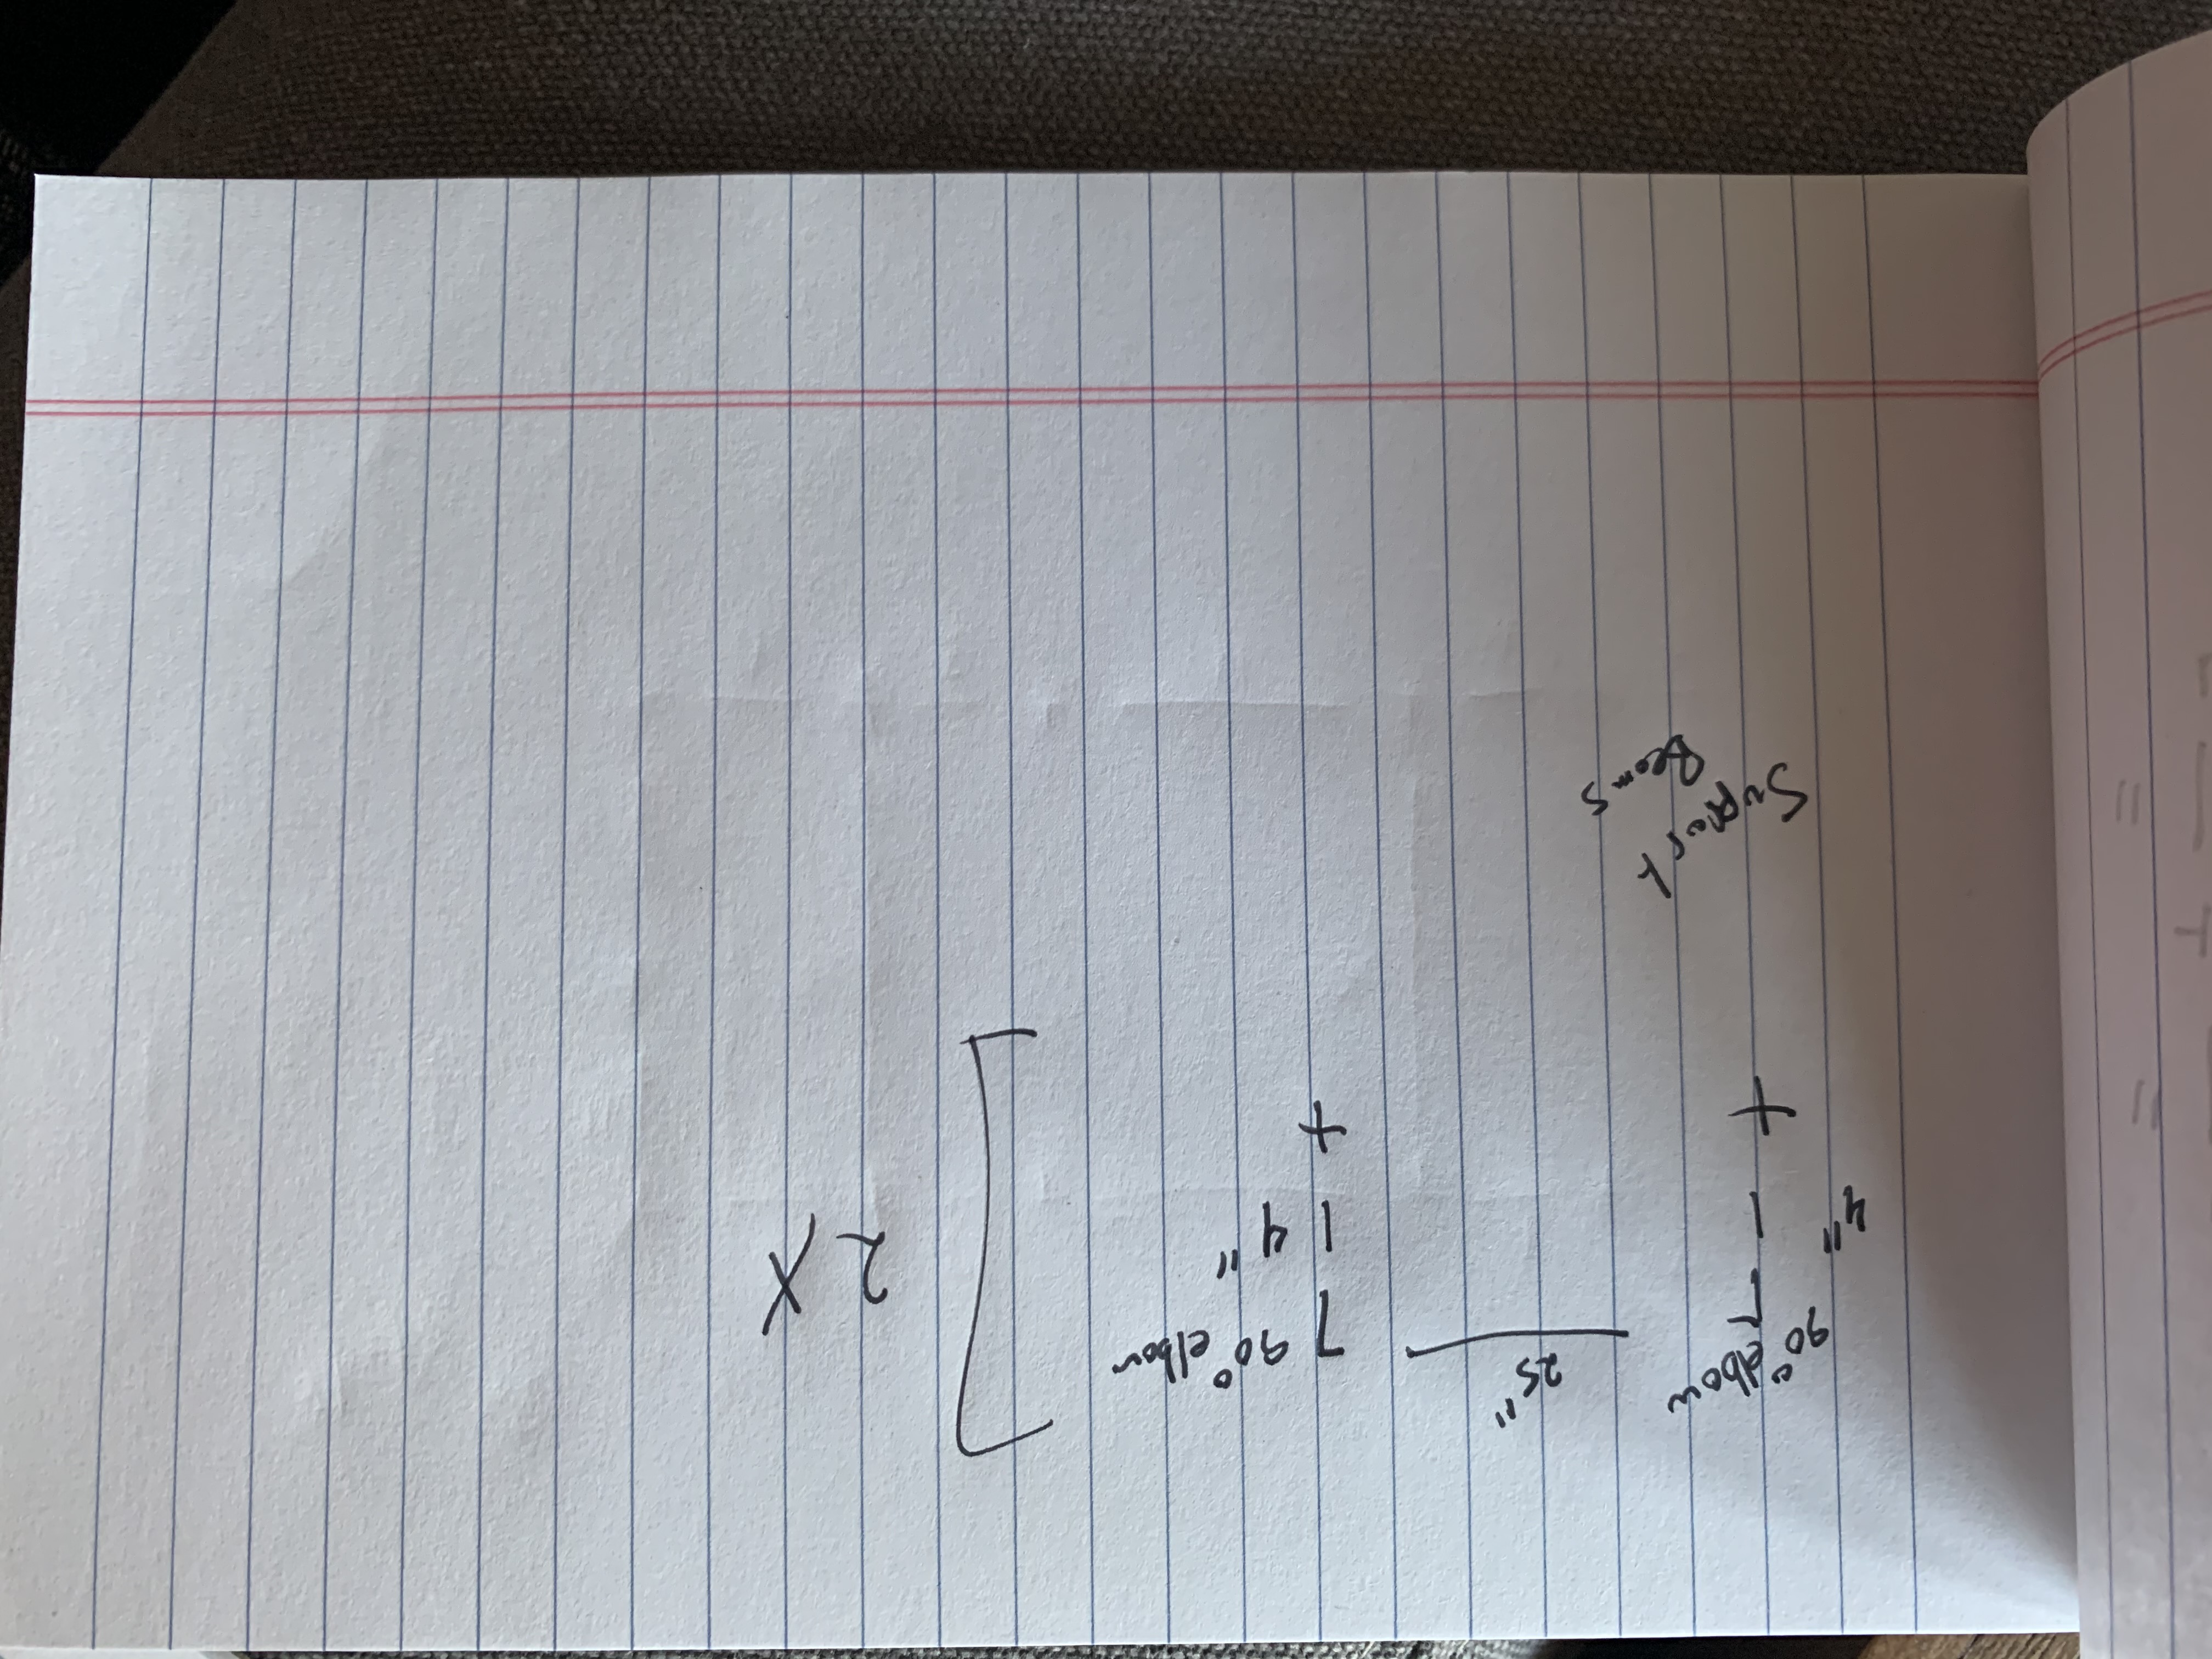 90° elbow
25"
90° elbow
4"
4"
+
+
2X
Support
Beams
"
+
"